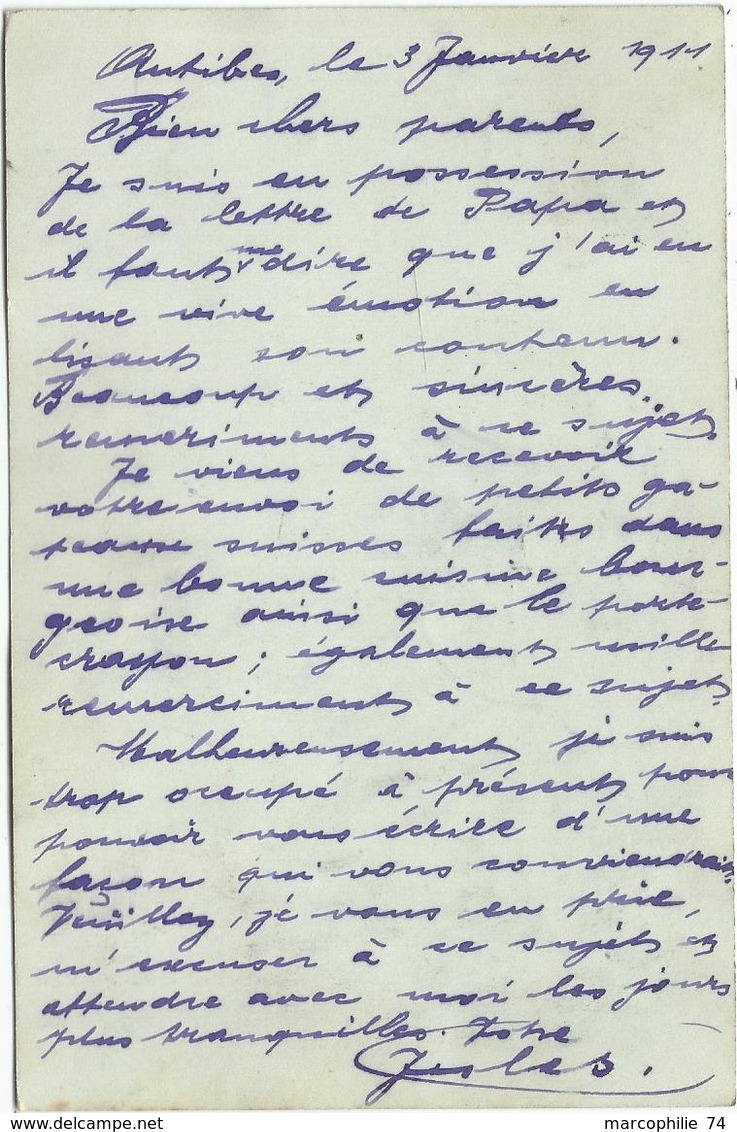 Antibes, le 3 Janvier 1911
Bien chers parents,
Je suis en possession
de la lettre de Papa et
il faut me dire que j'ai eu
une vive émotion en
lisant son contenu.
Beaucoup et sincères
remerciments à ce sujet.
Je viens de recevoir
votre envoi de petits gâ-
teaux suisses faits dans
une bonne cuisine bour-
geoise ainsi que le porte-
crayon; également mille
remerciments à ce sujet.
Malheureusement je suis
trop occupé à présent pour
pouvoir vous écrire d'une
façon qui vous conviendrait.
Veuillez, je vous en prie,
m'excuser à ce sujet et
attendre avec moi les jours
plus tranquilles. Votre
Jules.
marcophilie 74